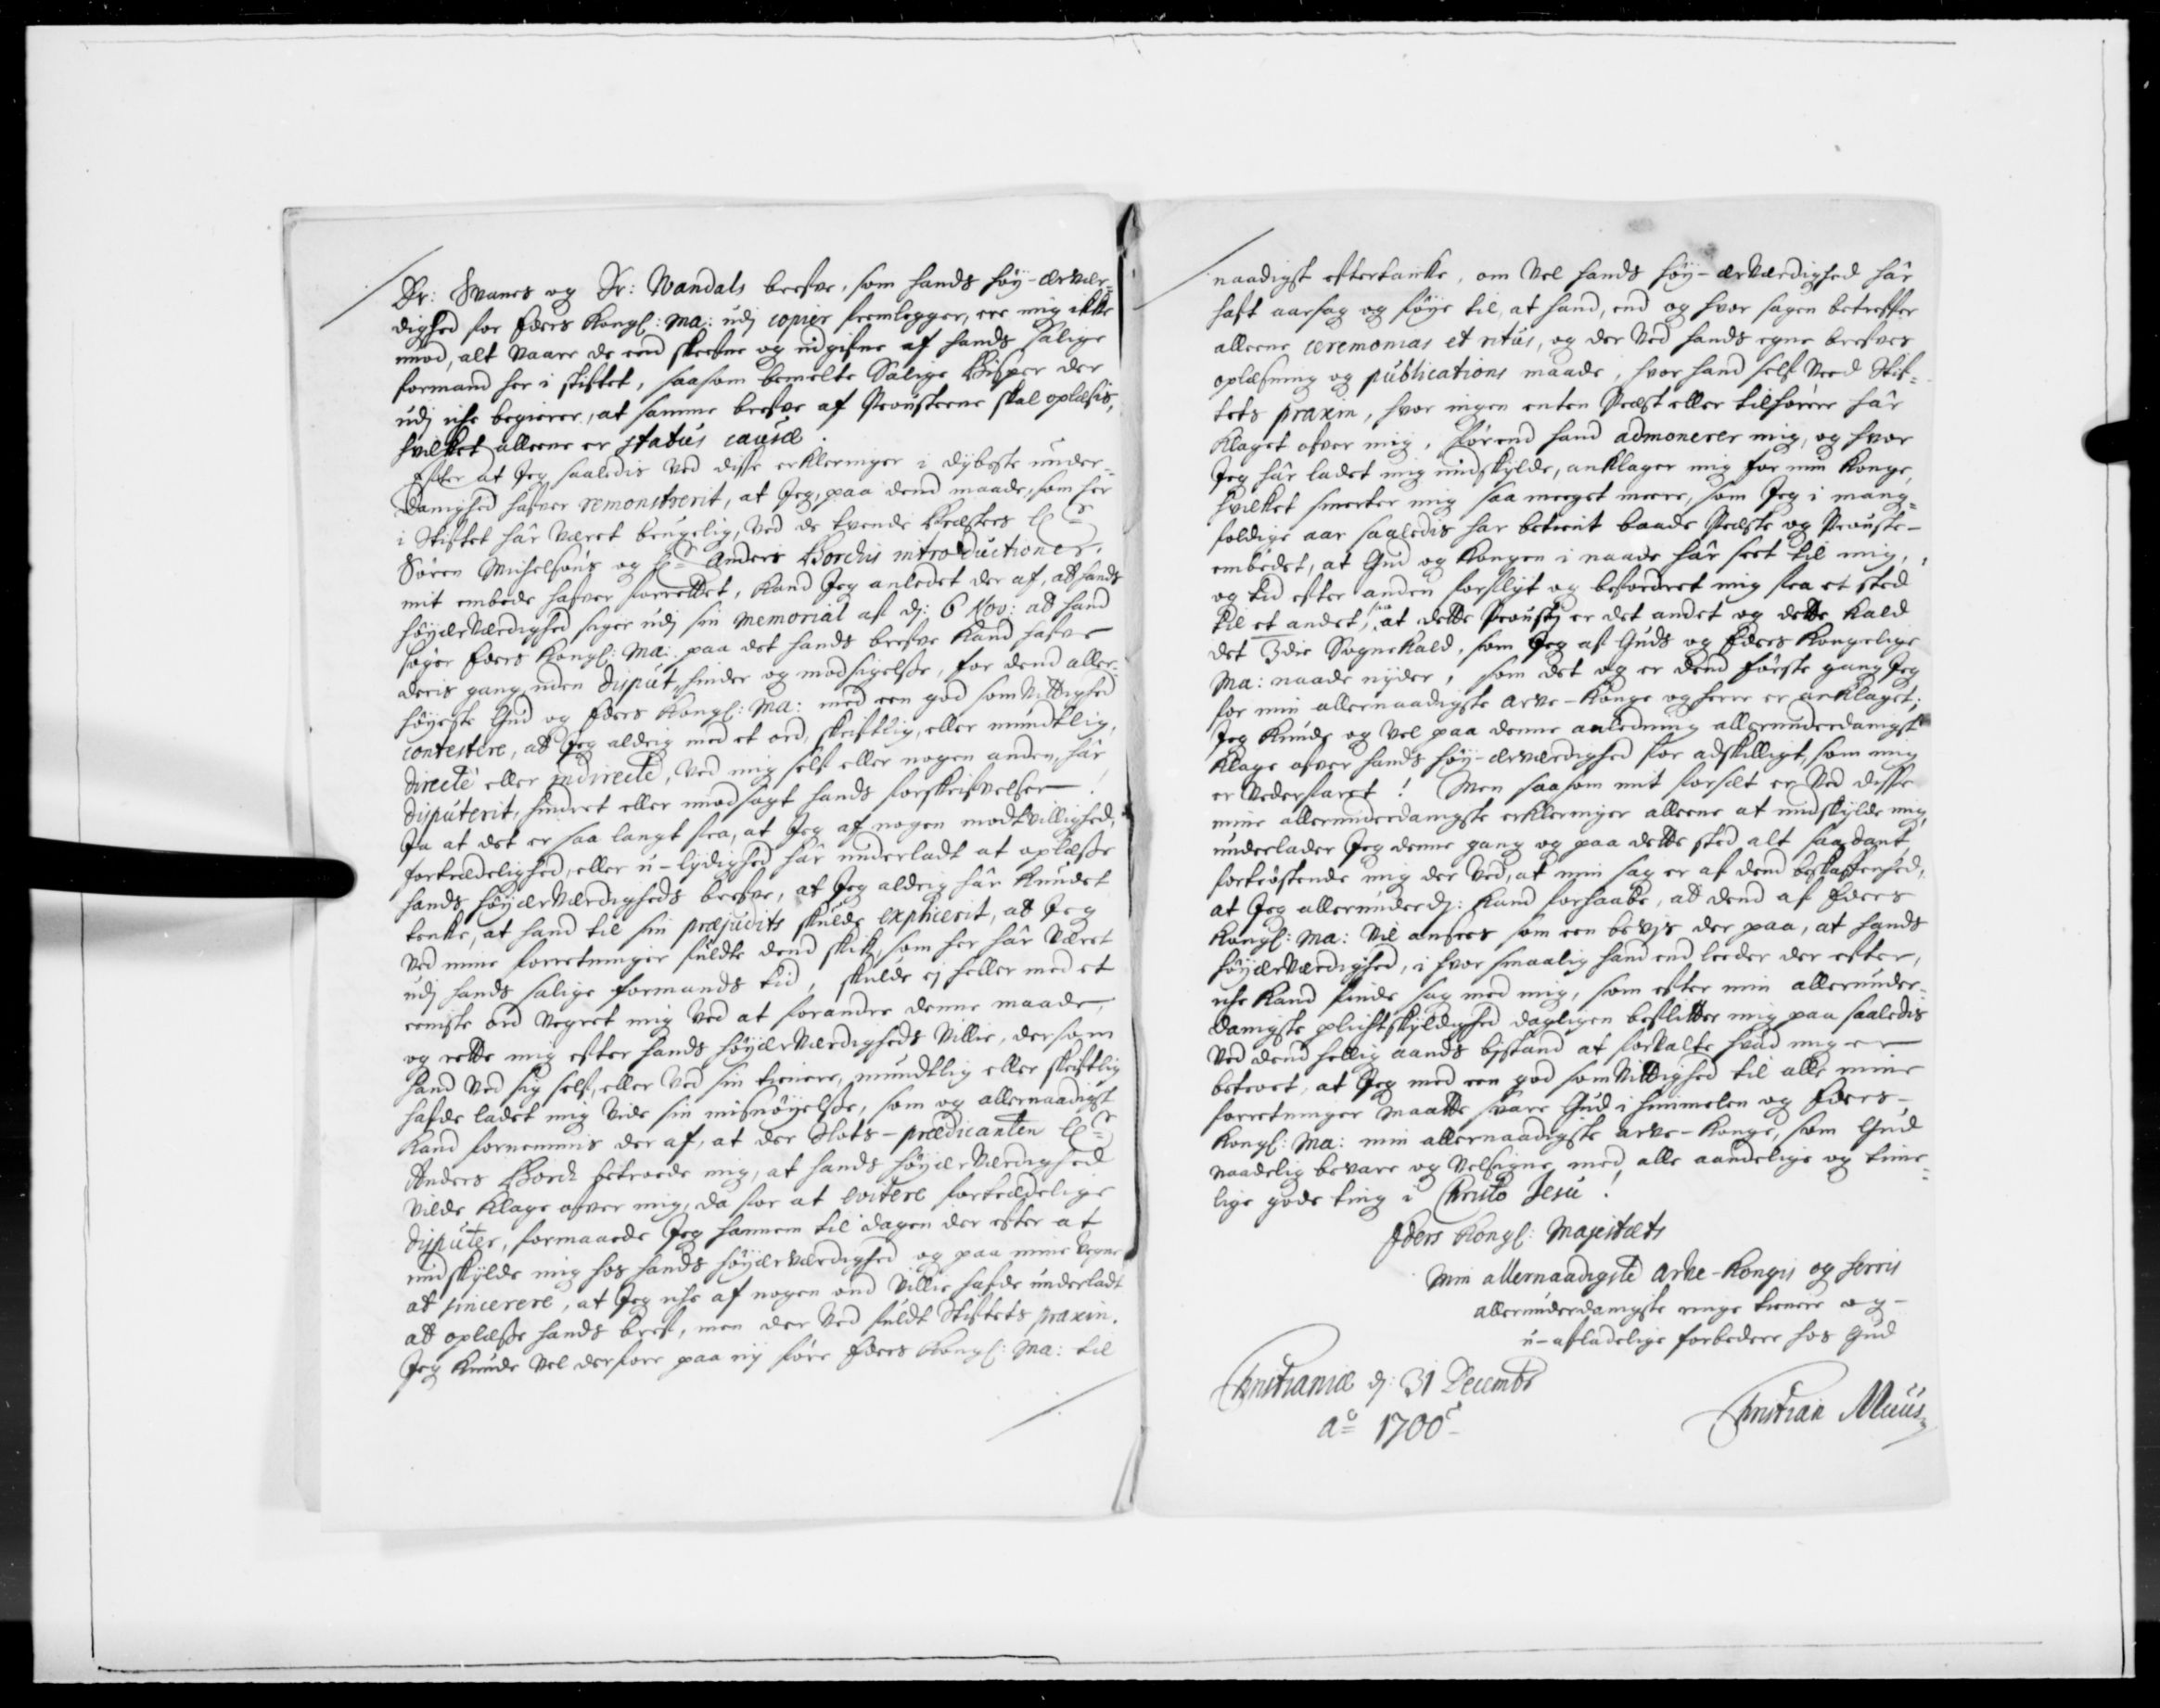 Dr: Svanes og Dr: Wandals brefve, som hands höy-ærvær-
dighed for Eders Kongl: Ma: udj copier fremlegger, ere mig ikke
imod, alt vaare de end skrefne og udgifne af hands Salige
formand her i stiftet, saasom bemelte Salige Bisper der
udj iche begierer, at samme brefve af Prousterne skal oplæsis,
hvilket alleene er status causæ.
Efter at Jeg saaledis ved disse erkleringer i dybeste under-
danighed hafver remonstrerit, at Jeg, paa dend maade, som her
i Stiftet hâr været brugelig, ved de tvende Præsters Hr
Sören Michelsöns og Hr Anders Borchis introductioner,
mit embede hafver forrettet, kand Jeg anledet der af, att hands
höyærværdighed siger udj sin Memorial af dj: 6 Nov: att hand
söger Eders Kongl: Ma: paa det hands brefve kand hafve
deris gang, uden disput, hinder og modsigelsse, for dend aller-
höyeste Gud og Eders Kongl: Ma: med een god samvittighed
contestere, att Jeg aldrig med et ord, skriftlig, eller mundtlig,
directè eller indirectè, ved mig self eller nogen anden, hâr
disputerit, hindret eller imodsagt hands forskrifvelser!
Ja at det er saa langt fra, at Jeg af nogen modtvillighed,
fortrædelighed, eller u-lydighed hâr underladt at oplæsse
hands höyærværdigheds brefve, at Jeg aldrig hâr kundet
tenke, at hand til sin præjudits skulde explicerit, att Jeg
ved mine forretninger fuldte dend skik, som her hâr været
udj hands salige formands tid, skulde ej heller med et
eeniste ord vegret mig ved at forandre denne maade,
og rette mig efter hands höyærværdigheds villie, dersom
hand ved sig self, eller ved sin tienere, mundtlig eller skriftlig
hafde ladet mig vide sin misnöyelsse, som og allernaadigst
kand fornemmis der af, at der Slots-prædicanten Hr
Anders Borch betroede mig, at hands höyærværdighed
vilde klage ofver mig, da for at evitere fortrædelige
disputer, formaaede Jeg hannem til dagen der efter at
undskylde mig hos hands höyærværdighed og paa mine vegne
at sincerere, at Jeg iche af nogen ond villie hafde underladt
att oplæsse hands bref, men der ved fuldt Stiftets praxin.
Jeg kunde vel derfore paa ny före Eders Kongl: Ma: til
naadigst eftertancke, om vel hands höy-ærværdighed hâr
haft aarsag og föye til, at hand, end og hvor sagen betreffer
alleene ceremonias et ritus, og der ved hands egne brefves
oplæsning og publications maade, hvor hand self veed Stif-
tets praxin, hvor ingen enten Præst eller tilhörere hâr
klaget ofver mig, förend hand admonerer mig, og hvor
Jeg hâr ladet mig undskylde, anklager mig for min Konge,
hvilket smerter mig saa meeget meere, som Jeg i mang-
foldige aar saaledis har betient baade Præste og Prouste-
embedet, at Gud og Kongen i naade hâr seet til mig,
og tid efter anden forflyt og befordret mig fra et sted
til et andet, saa at dette Prousti er det andet og dette kald
det 3die Sognekald, som Jeg af Guds og Eders Kongelige
Ma: naade nyder, som det og er dend förste gang Jeg
for min allernaadigste arve-Konge og herre er anklaget;
Jeg kunde og vel paa denne anledning allerunderdanigst
klage ofver hands höy-ærværdighed for adskilligt, som mig
er vederfaret! Men saasom mit forsæt er ved disse
mine allerunderdanigste erkleringer alleene at undskylde mig,
underlader Jeg denne gang og paa dette sted alt saadant,
fortröstende mig der ved, at min sag er af dend beskaffenhed,
at Jeg allerunderdj: kand forhaabe, att dend af Eders
Kongl: Ma: vil ansees som een beviis der paa, at hands
höyærværdighed, i hvor smaalig hand end leeder der efter,
iche kand finde sag med mig, som efter min allerunder-
danigste plichtskyldighed dagligen beflitter mig paa saaledis
ved dend hellig aands bistand at forvalte hvad mig er
betroet, at Jeg med een god samvittighed til alle mine
forretninger maatte svare Gud i himmelen og Eders
Kongl: Ma: min allernaadigste arve-Konge, som Gud
naadelig bevare og velsigne med alle aandelige og time-
lige gode ting i Christo Jesu!
Eders Kongl: Majestæts
Min allernaadigste Arve-Kongis og Herris
allerunderdanigste ringe tienere og
u-afladelige forbedere hos Gud
Christianiæ dj: 31 Decembr
Ao 1700
Christian Muus